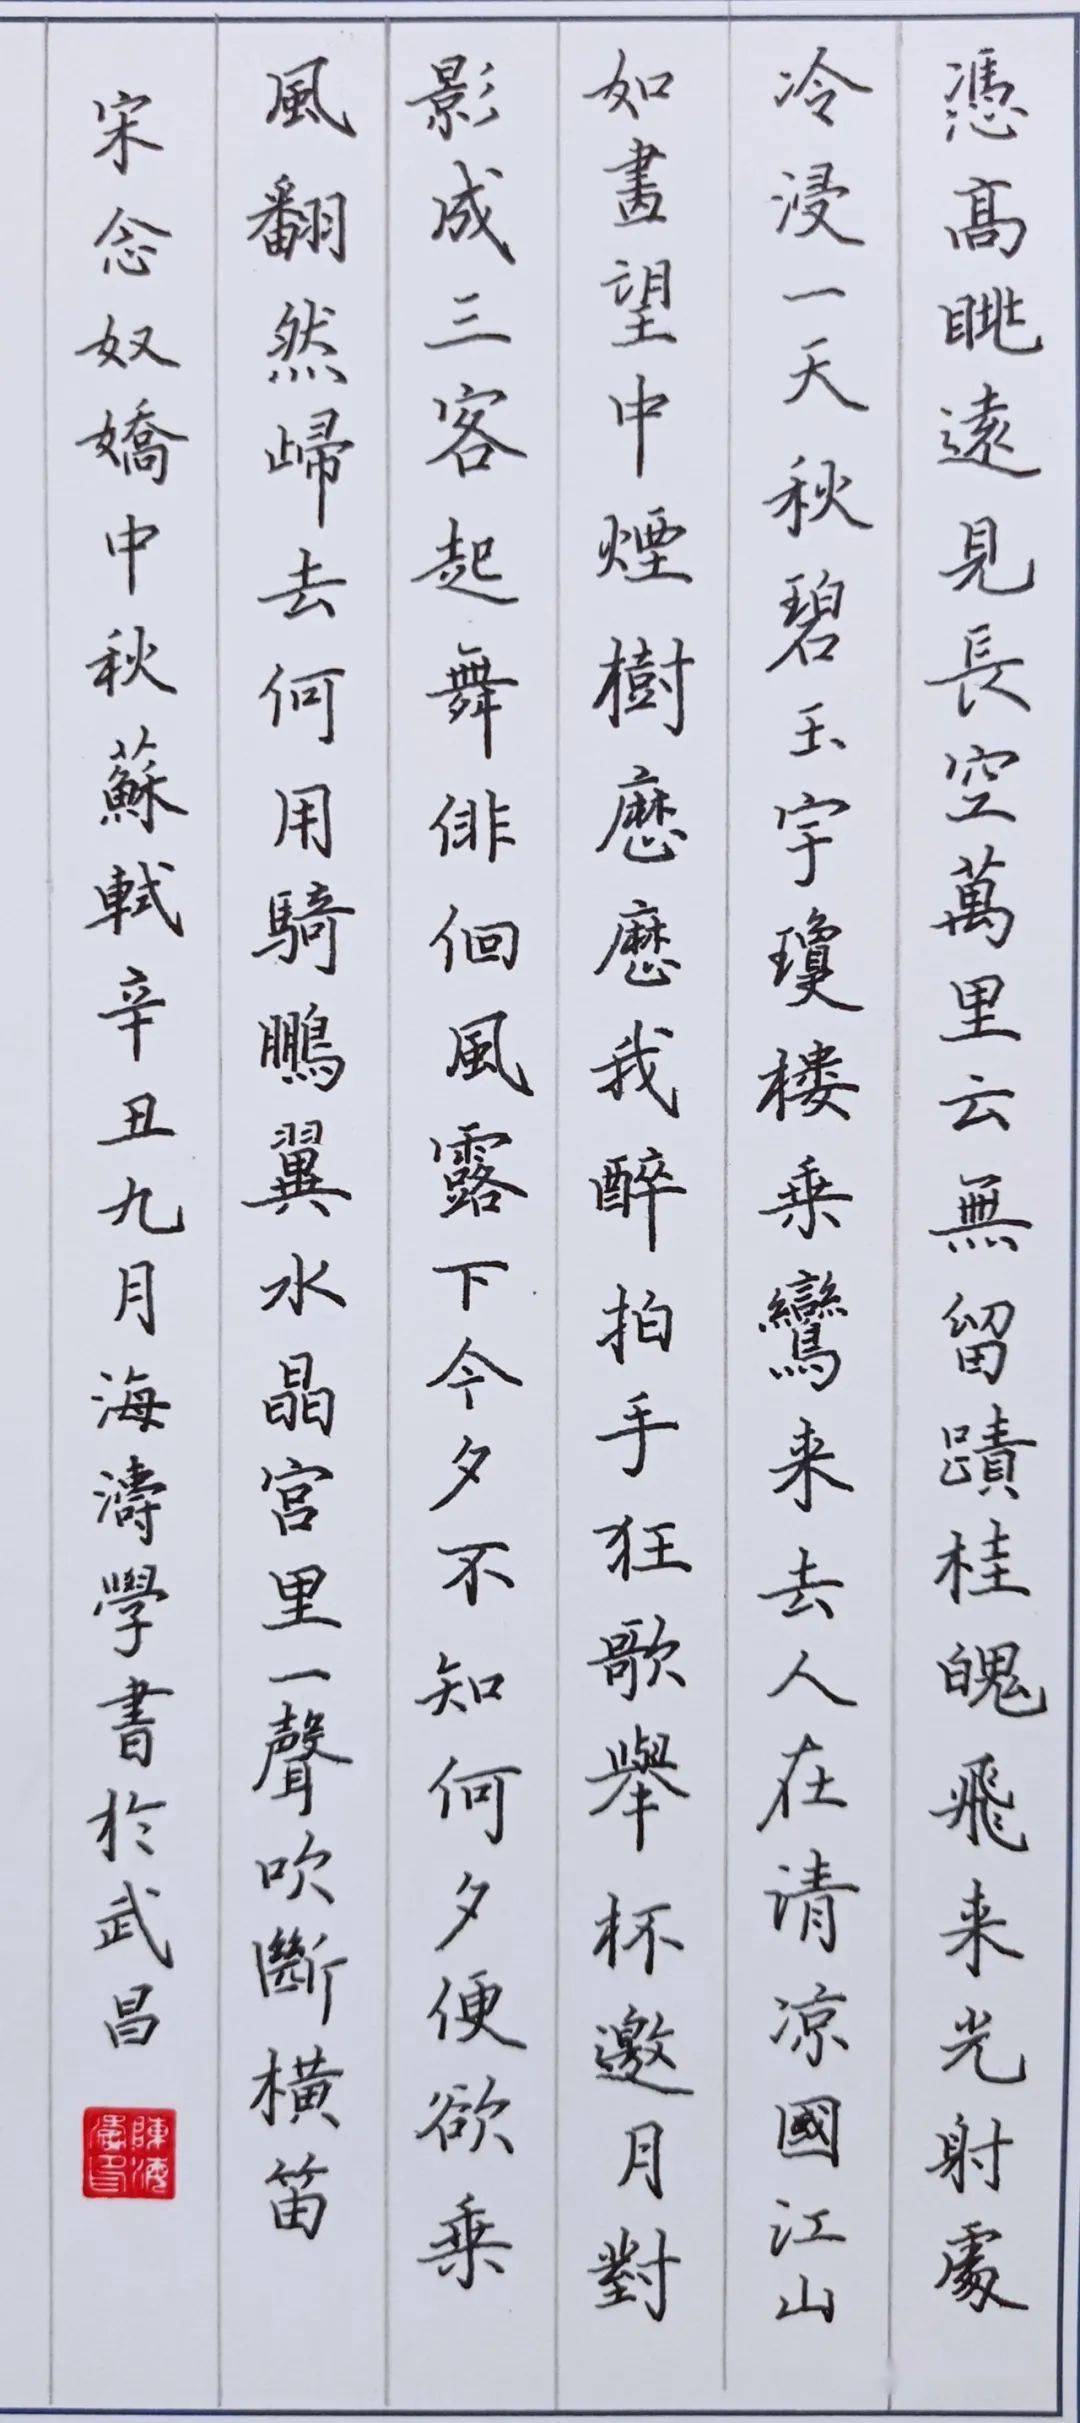 憑高眺遠見長空萬里云無留蹟桂魄飛来光射處
冷浸一天秋碧玉宇瓊楼乘鸞来去人在清凉國江山
如畫望中煙樹歷歷我醉拍手狂歌舉杯邀月對
影成三客起舞徘徊風露下今夕不知何夕便欲乘
風翻然歸去何用騎鵬翼水晶宮里一聲吹斷橫笛
宋念奴嬌中秋蘇軾辛丑九月海濤學書於武昌
陳海濤印